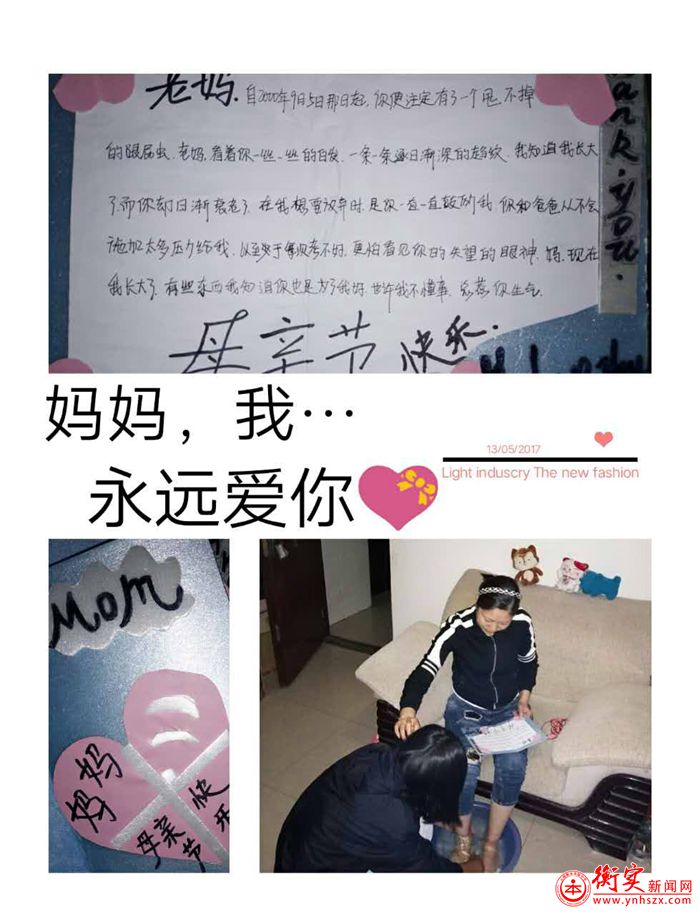 老妈.自2000年9月5日那日起,你便注定有了一个甩不掉
的跟屁虫.老妈,看着你一丝一丝的白发.一条一条逐日渐深的皱纹.我知道我长大
了而你却日渐衰老了.在我想要放弃时.是你一直一直鼓励我.你和爸爸从不会
施加太多压力给我.以至于每次考不好.更怕看见你的失望的眼神.妈.现在
我长大了.有些东西我知道你也是为了我好.也许我不懂事.总惹你生气.
母亲节快乐.
Thank you.
妈妈，我…
永远爱你
13/05/2017
Light induscry The new fashion
Mom
妈妈
母亲节
快乐
衡实新闻网
www.ynhszx.com